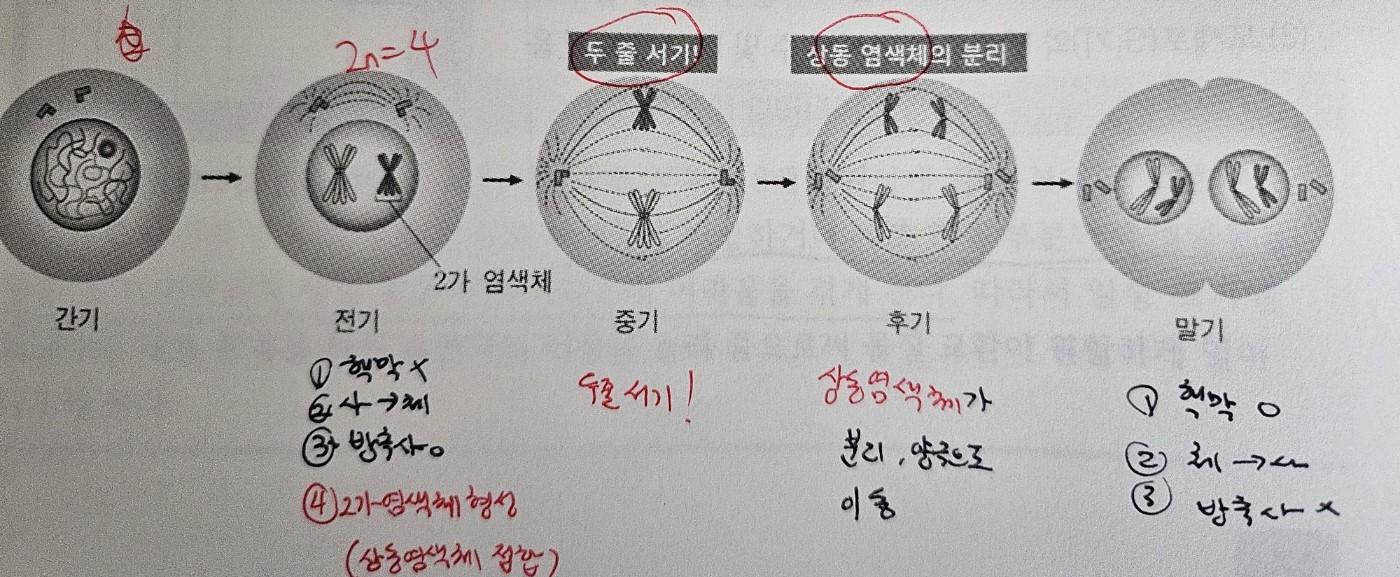 2n=4
두 줄 서기!
상동 염색체의 분리
2가 염색체
간기
전기
중기
후기
말기
① 핵막 x
② 사→체
③ 방추사o
④ 2가염색체 형성
(상동염색체 접합)
두줄 서기!
상동염색체가
분리, 양극으로
이동
① 핵막 o
② 체→사
③ 방추사 x